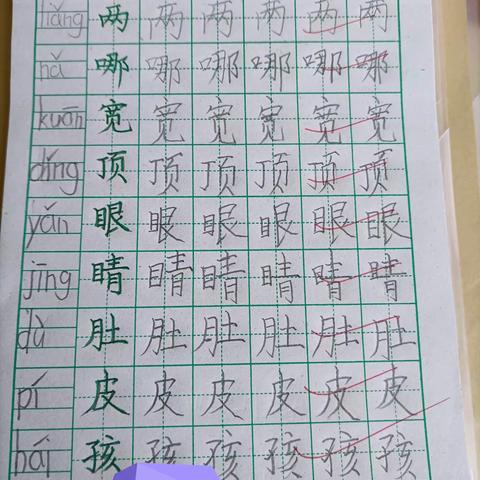 liǎng 两 两 两 两 两 两
nǎ 哪 哪 哪 哪 哪 哪
kuān 宽 宽 宽 宽 宽 宽
dǐng 顶 顶 顶 顶 顶 顶
yǎn 眼 眼 眼 眼 眼 眼
jīng 睛 睛 睛 睛 睛 睛
dù 肚 肚 肚 肚 肚 肚
pí 皮 皮 皮 皮 皮 皮
hái 孩 孩 孩 孩 孩 孩